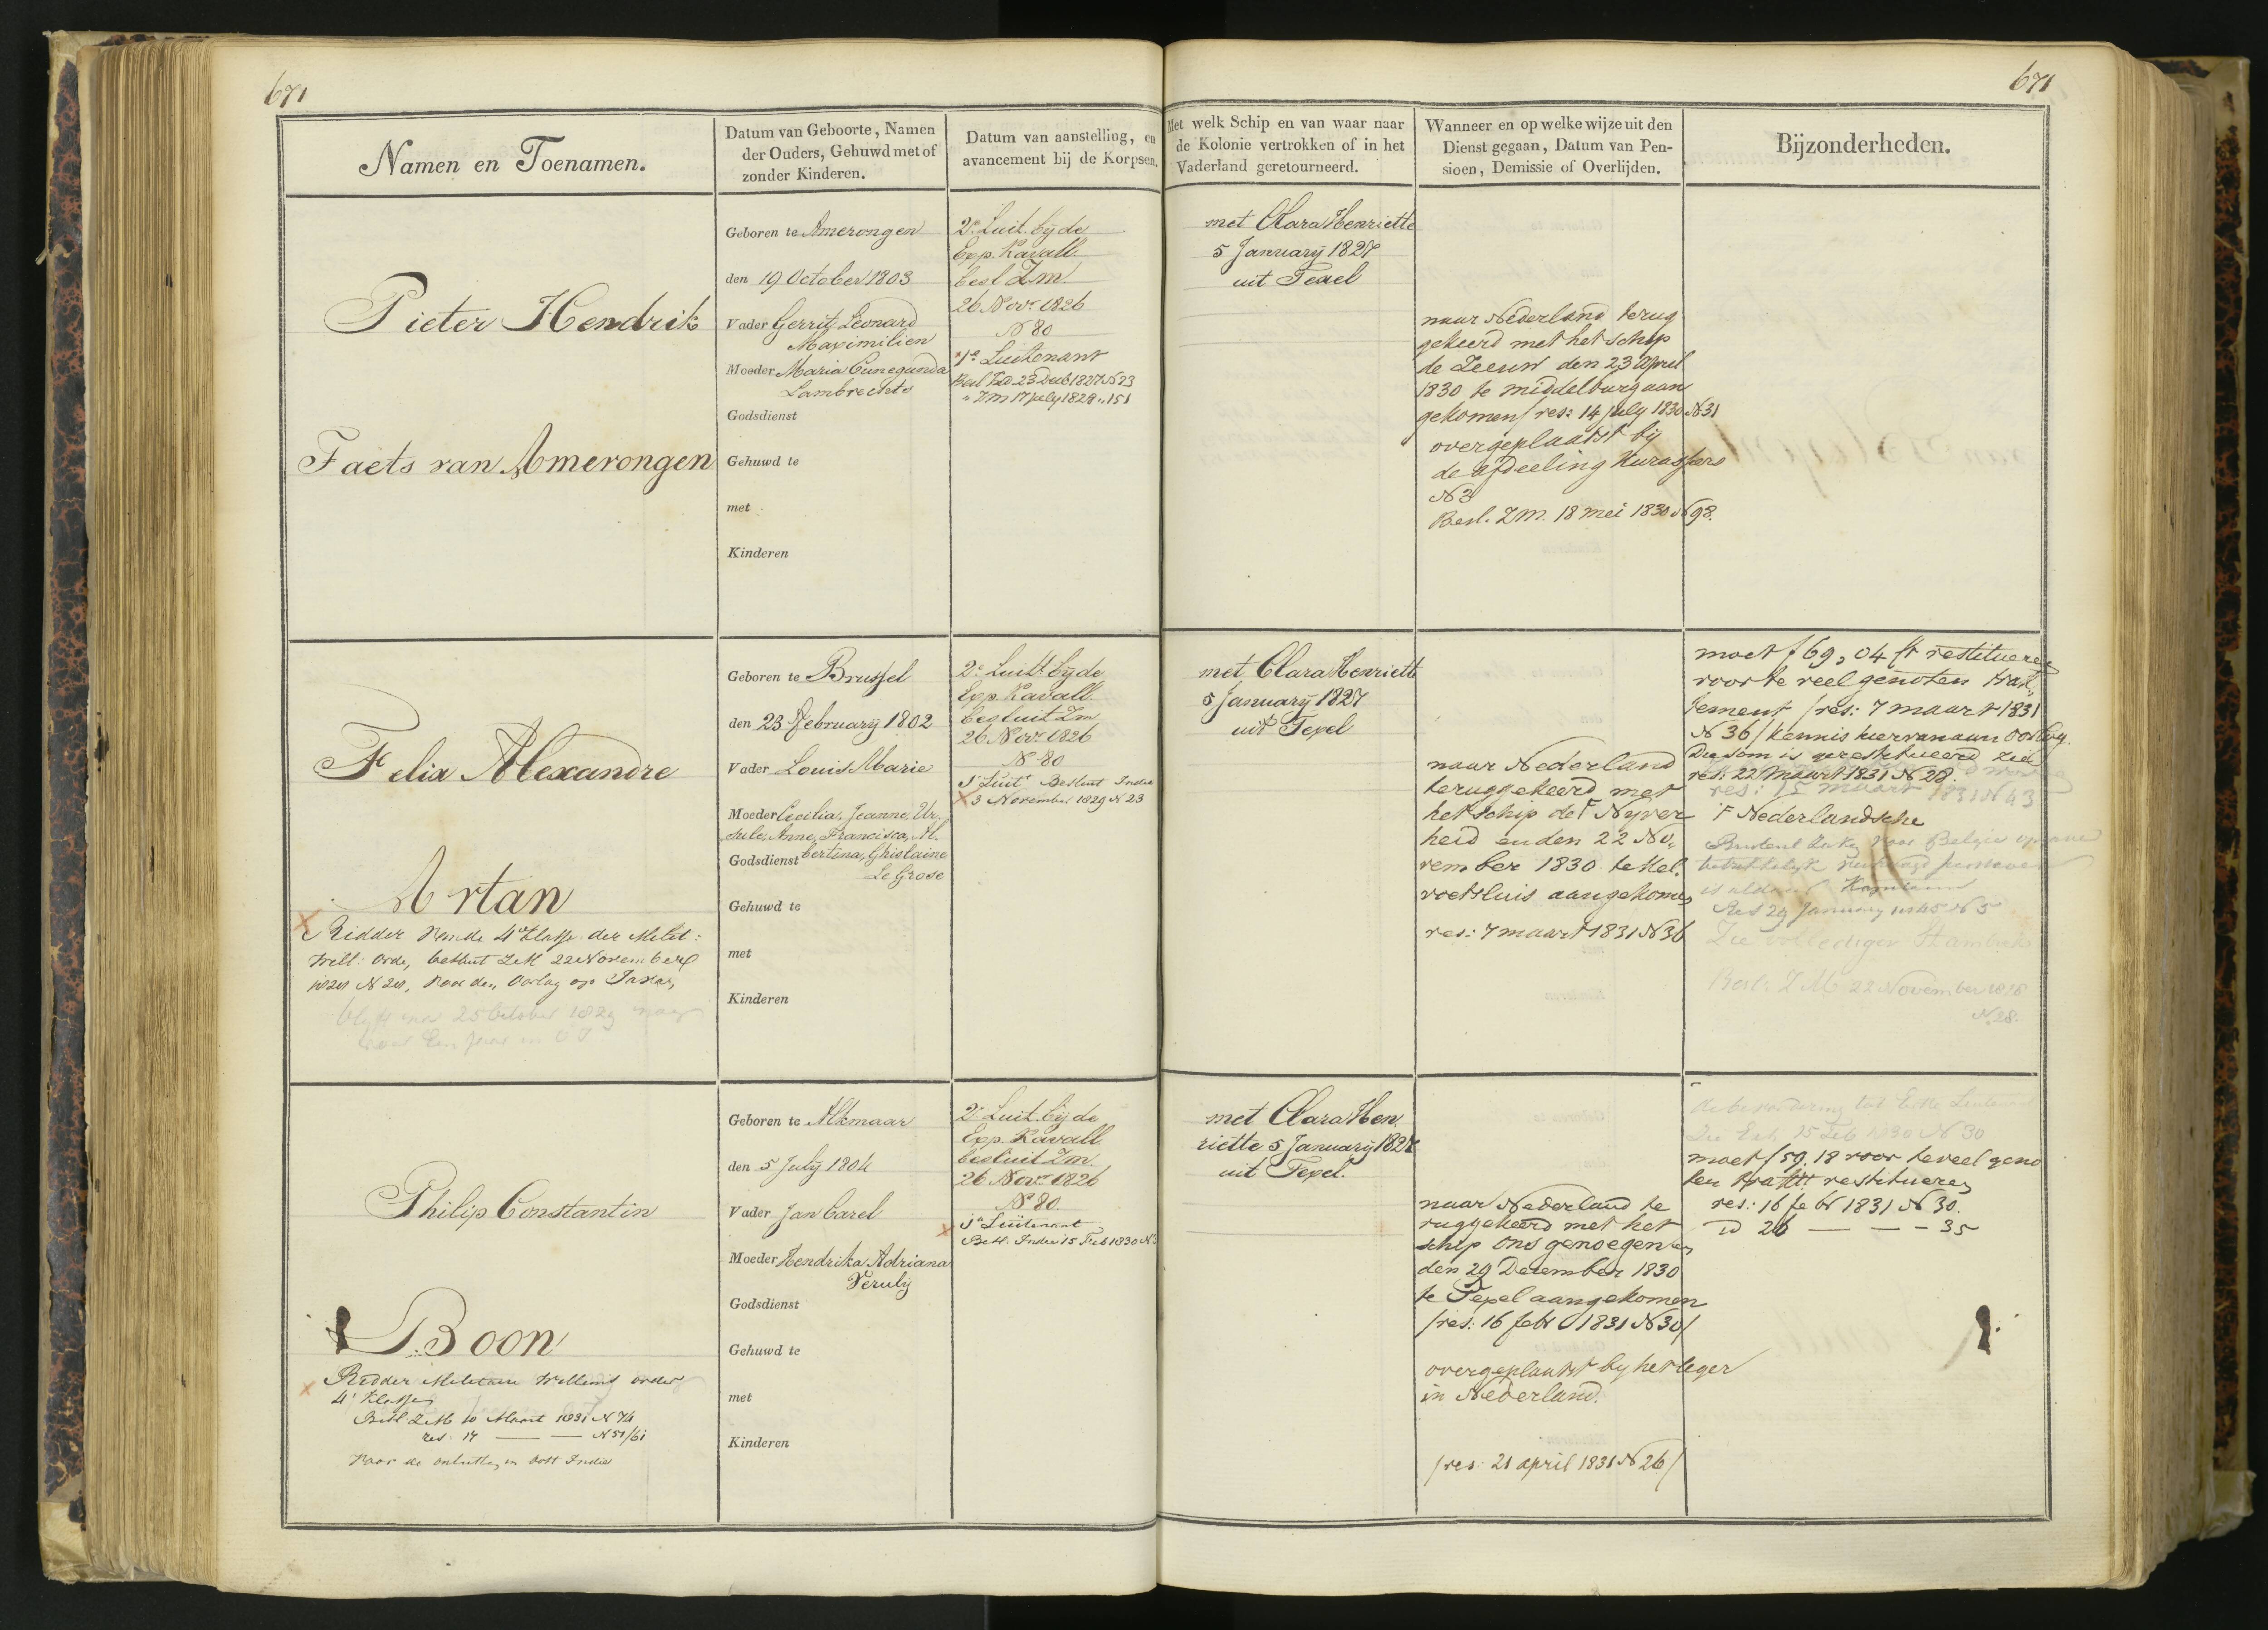 671
671
Namen en Toenamen.
Datum van Geboorte, Namen
der Ouders, Gehuwd met of
zonder Kinderen.
Datum van aanstelling, en
avancement bij de Korpsen.
Met welk Schip en van waar naar
de Kolonie vertrokken of in het
Vaderland geretourneerd.
Wanneer en op welke wijze uit den
Dienst gegaan, Datum van Pen-
sioen, Demissie of Overlijden.
Bijzonderheden.
Pieter Hendrik
Taets van Amerongen
Geboren te Amerongen
den 19 October 1803
Vader Gerrit Leonard
Maximilien
Moeder Maria Cunegunda
Lambrechts
Godsdienst
Gehuwd te
met
Kinderen
2e Luit. bij de
Exp. Kavall.
besl Z.m.
26 Novr 1826
No 80
1e Luitenant
Besl Ind. 23 Decb 1827 N 23
" Z m 17 July 1828 " 151
met Clara Henriette
5 January 1827
uit Texel
naar Nederland terug
gekeerd met het schip
de Zeeuw den 23 april
1830 te middelburg aan
gekomen / res: 14 july 1830 N 31
overgeplaatst bij
de afdeeling Kurassiers
N 3
Besl. Z M. 18 mei 1830 N 98.
Felix Alexandre
Artan
Ridder van de 4e Klasse der Milit:
Will: Orde, besluit ZM 22 November
1828 N 28, voor den Oorlog op Java,
25 October 1829
Geboren te Brussel
den 23 February 1802
Vader Louis Marie
Moeder Cecilia, Jeanne, Ur-
sule, Anne, Francisca, Al-
Godsdienst bertina, Ghislaine
Le Grose
Gehuwd te
met
Kinderen
2e Luitt bij de
Exp. Kavall.
besluit Z m
26 Novr 1826
No 80
1e Luitt Besluit Indie
3 November 1829 N 23
met Clara Henriette
5 January 1827
uit Texel
naar Nederland
teruggekeerd met
het schip de F Nyver
heid en den 22 No-
vember 1830 te Hel-
voetsluis aangekomen
res: 7 maart 1831 N 36
moet f 69,04 ct restitueren
voor te veel genoten trak-
tement / res: 7 maart 1831
N 36 / kennis hiervan aan Oorlog.
Die som is gerestitueerd zie
res: 22 Maart 1831 N 28.
res: 15 maart 1831 N 43
F Nederlandsche
Res 29 January 1845 N 5
Zie vollediger Stamboek
Besl: Z M 22 November 1828
N 28.
Philip Constantin
Boon
Ridder Militaire Willems order
4e Klasse
Besl ZM 10 Maart 1831 N 74
res: 17 — — N 51/61
Voor de onlusten in Oost Indie
Geboren te Alkmaar
den 5 July 1804
Vader Jan Carel
Moeder Hendrika Adriana
Verulij
Godsdienst
Gehuwd te
met
Kinderen
2e Luit. bij de
Exp. Kavall.
besluit Z m.
26 Novr 1826
No 80.
1e Luitenant
Besl. Indie 15 Feb 1830 N 3
met Clara Hen
riette 5 January 1827
uit Texel.
naar Nederland te
ruggekeerd met het
schip ons genoegen en
den 29 December 1830
te Texel aangekomen
/res: 16 febr 1831 N 30/
overgeplaatst by het leger
in Nederland.
/res: 21 april 1831 N 26/
de bevordering tot Eerste Luitenant
Zie Exh 15 Feb 1830 N 30
moet f 59,18 voor te veel geno
ten traktt restitueren
res: 16 febr 1831 N 30.
id 26 — — — 35